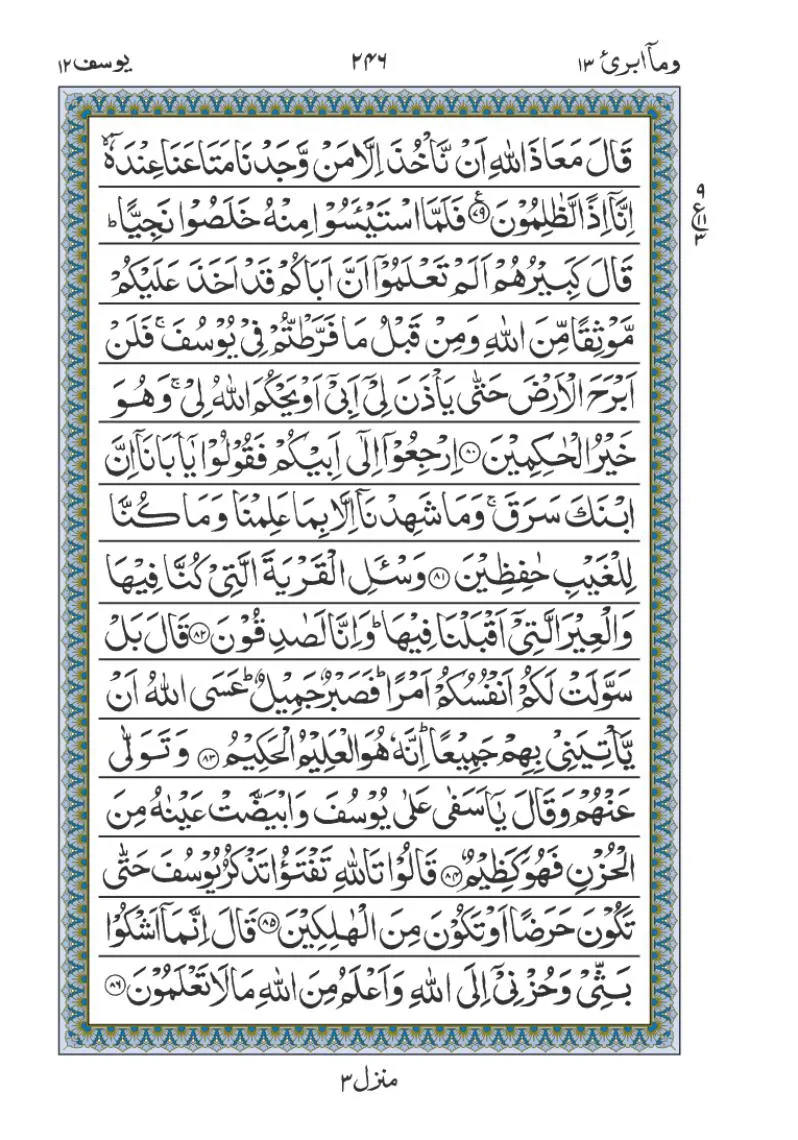 وما ابرئ ١٣ ٢٤٦ يوسف ١٢
قَالَ مَعَاذَ اللّٰهِ اَنْ نَّاْخُذَ اِلَّا مَنْ وَّجَدْنَا مَتَاعَنَا عِنْدَهٗۤ ۙ
اِنَّاۤ اِذًا لَّظٰلِمُوْنَ ﴿۷۹﴾ ع فَلَمَّا اسْتَيْئَسُوْا مِنْهُ خَلَصُوْا نَجِيًّا ؕ
٩
ع ١١
٣
قَالَ كَبِيْرُهُمْ اَلَمْ تَعْلَمُوْۤا اَنَّ اَبَاكُمْ قَدْ اَخَذَ عَلَيْكُمْ
مَّوْثِقًا مِّنَ اللّٰهِ وَمِنْ قَبْلُ مَا فَرَّطْتُّمْ فِيْ يُوْسُفَ ۚ فَلَنْ
اَبْرَحَ الْاَرْضَ حَتّٰى يَاْذَنَ لِيْۤ اَبِيْۤ اَوْ يَحْكُمَ اللّٰهُ لِيْ ۚ وَهُوَ
خَيْرُ الْحٰكِمِيْنَ ﴿۸۰﴾ اِرْجِعُوْۤا اِلٰۤى اَبِيْكُمْ فَقُوْلُوْا يٰۤاَبَانَاۤ اِنَّ
ابْنَكَ سَرَقَ ۚ وَمَا شَهِدْنَاۤ اِلَّا بِمَا عَلِمْنَا وَمَا كُنَّا
لِلْغَيْبِ حٰفِظِيْنَ ﴿۸۱﴾ وَسْئَلِ الْقَرْيَةَ الَّتِيْ كُنَّا فِيْهَا
وَالْعِيْرَ الَّتِيْۤ اَقْبَلْنَا فِيْهَا ؕ وَاِنَّا لَصٰدِقُوْنَ ﴿۸۲﴾ قَالَ بَلْ
سَوَّلَتْ لَكُمْ اَنْفُسُكُمْ اَمْرًا ؕ فَصَبْرٌ جَمِيْلٌ ؕ عَسَى اللّٰهُ اَنْ
يَّاْتِيَنِيْ بِهِمْ جَمِيْعًا ؕ اِنَّهٗ هُوَ الْعَلِيْمُ الْحَكِيْمُ ﴿۸۳﴾ وَتَوَلّٰى
عَنْهُمْ وَقَالَ يٰۤاَسَفٰى عَلٰى يُوْسُفَ وَابْيَضَّتْ عَيْنٰهُ مِنَ
الْحُزْنِ فَهُوَ كَظِيْمٌ ﴿۸۴﴾ قَالُوْا تَاللّٰهِ تَفْتَؤُا تَذْكُرُ يُوْسُفَ حَتّٰى
تَكُوْنَ حَرَضًا اَوْ تَكُوْنَ مِنَ الْهٰلِكِيْنَ ﴿۸۵﴾ قَالَ اِنَّمَاۤ اَشْكُوْا
بَثِّيْ وَحُزْنِيْۤ اِلَى اللّٰهِ وَاَعْلَمُ مِنَ اللّٰهِ مَا لَا تَعْلَمُوْنَ ﴿۸۶﴾
منزل ٣